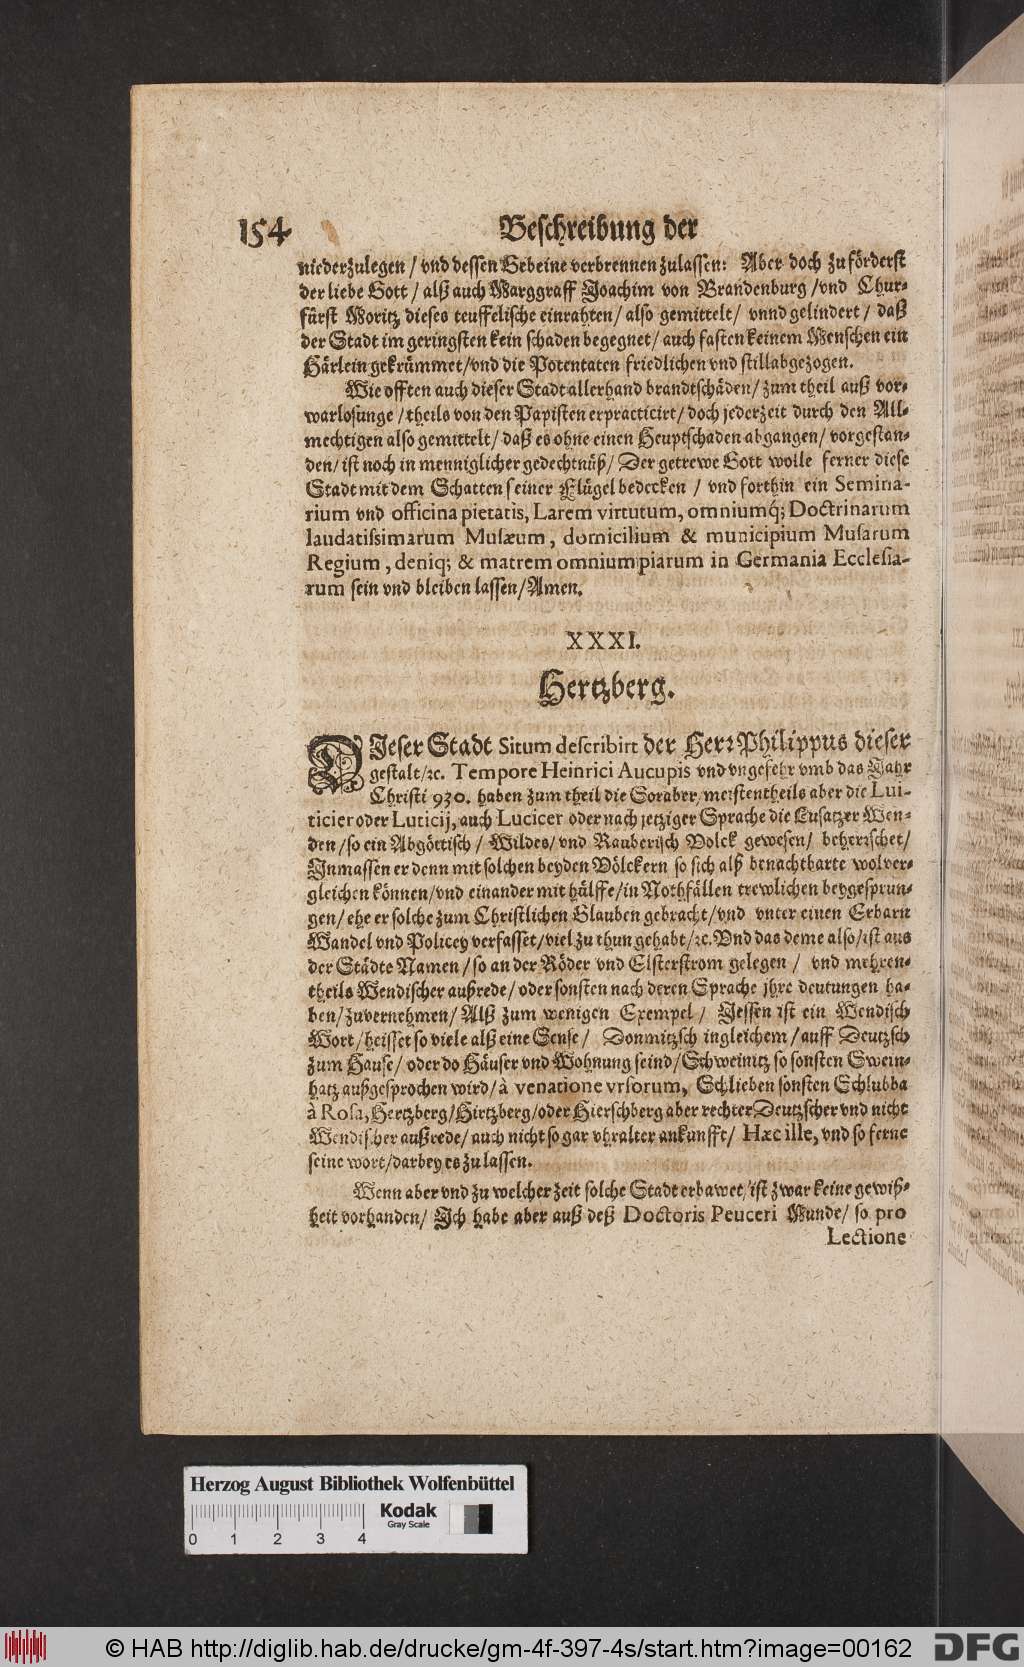 154 Beschreibung der
niederzulegen / vnd dessen Gebeine verbrennen zulassen: Aber doch zu förderst
der liebe Gott / alß auch Marggraff Joachim von Brandenburg / vnd Chur-
fürst Moritz dieses teuffelische einrahten / also gemittelt / vnnd gelindert / daß
der Stadt im geringsten kein schaden begegnet / auch fasten keinem Menschen ein
Härlein gekrümmet / vnd die Potentaten friedlichen vnd still abgezogen.
Wie offten auch dieser Stadt allerhand brandtschäden / zum theil auß vor-
warlosunge / theils von den Papisten erpracticirt / doch jederzeit durch den All-
mechtigen also gemittelt / daß es ohne einen Heuptschaden abgangen / vorgestan-
den / ist noch in menniglicher gedechtnüß / Der getrewe Gott wolle ferner diese
Stadt mit dem Schatten seiner Flügel bedecken / vnd forthin ein Semina-
rium vnd officina pietatis, Larem virtutum, omniumq́; Doctrinarum
laudatissimarum Musæum, domicilium & municipium Musarum
Regium, deniq; & matrem omnium piarum in Germania Ecclesia-
rum sein vnd bleiben lassen / Amen.
XXXI.
Hertzberg.
DIeser Stadt Situm describirt der Herr Philippus dieser
gestalt / ꝛc. Tempore Heinrici Aucupis vnd vngefehr vmb das Jahr
Christi 930. haben zum theil die Soraber / meistentheils aber die Lui-
ticier oder Luticij, auch Lucicer oder nach jetziger Sprache die Lusatzer Wen-
den / so ein Abgöttisch / Wildes / vnd Rauberisch Volck gewesen / beherrschet /
Inmassen er denn mit solchen beyden Völckern so sich alß benachtbarte wol ver-
gleichen können / vnd einander mit hülffe / in Nothfällen trewlichen beygesprun-
gen / ehe er solche zum Christlichen Glauben gebracht / vnd vnter einen Erbarn
Wandel vnd Policey verfasset / viel zu thun gehabt / ꝛc. Vnd das deme also / ist aus
der Städte Namen / so an der Röder vnd Elsterstrom gelegen / vnd mehren-
theils Wendischer außrede / oder sonsten nach deren Sprache jhre deutungen ha-
ben / zuvernehmen / Alß zum wenigen Exempel / Jessen ist ein Wendisch
Wort / heisset so viele alß eine Sense / Donmitzsch ingleichem / auff Deutzsch
zum Hause / oder do Häuser vnd Wohnung seind / Schweinitz so sonsten Swein-
hatz außgesprochen wird / à venatione vrsorum, Schlieben sonsten Schlubba
à Rosa, Hertzberg / Hirtzberg / oder Hierschberg aber rechter Deutzscher vnd nicht
Wendischer außrede / auch nicht so gar vhralter ankunfft / Hæc ille, vnd so ferne
seine wort / darbey es zu lassen.
Wenn aber vnd zu welcher zeit solche Stadt erbawet / ist zwar keine gewiß-
heit vorhanden / Ich habe aber auß deß Doctoris Peuceri Munde / so pro
Lectione
Herzog August Bibliothek Wolfenbüttel
0 1 2 3 4
Kodak
Gray Scale
© HAB http://diglib.hab.de/drucke/gm-4f-397-4s/start.htm?image=00162
DFG